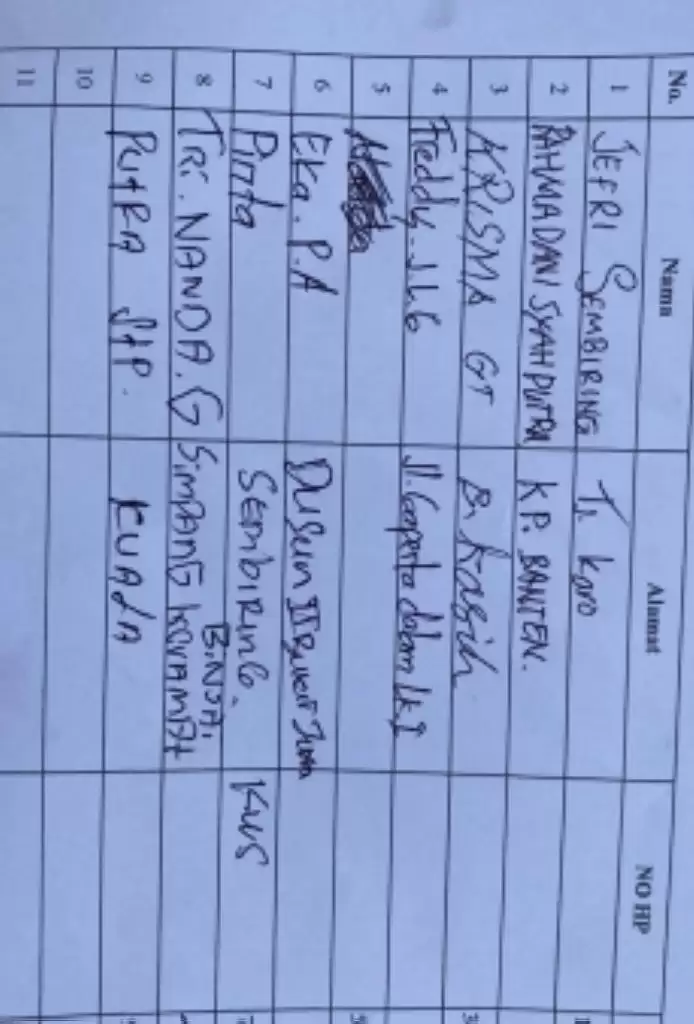 No. Nama Alamat NO HP
1 JEFRI SEMBIRING Tj. Karo
2 RAHMADANI SYAHPUTRA KP. BANTEN.
3 KRISMA GT B. Kasih
4 Freddy. J. Jl. Gaperta dalam LK I
5
6 Eka. P.A Dusun II
7 Pinta SEMBIRING. KWS
8 TRI. NANDA. G SIMPANG BINJAI
9 PUTRA STP. KUALA
10
11